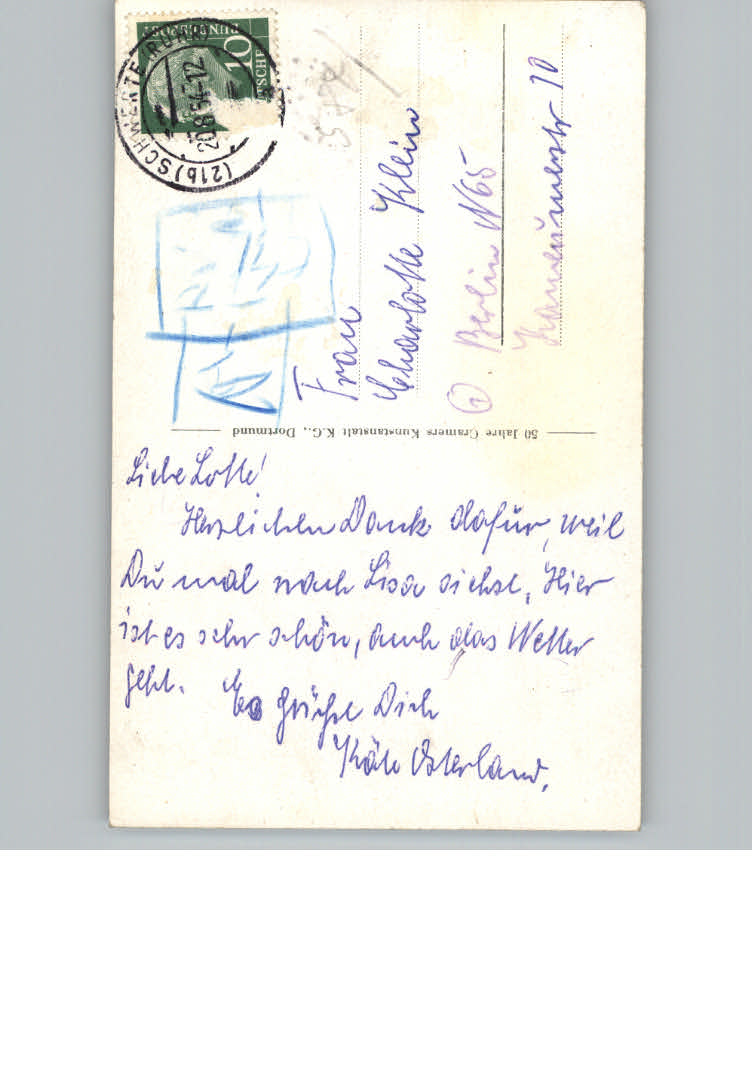 Liebe Lotte!
Herzlichen Dank dafür, weil
Du mal nach Lisa siehst, Hier
ist es sehr schön, auch das Wetter
geht. Es grüßt Dich
Käte Osterland.
50 Jahre Cramers Kunstanstalt K.G., Dortmund
Frau
Charlotte Klein
① Berlin N 65
Kamerunerstr 10
(21b) SCHWERTE (RUHR)
20.8.54.12
DEUTSCHE
BUNDESPOST
10